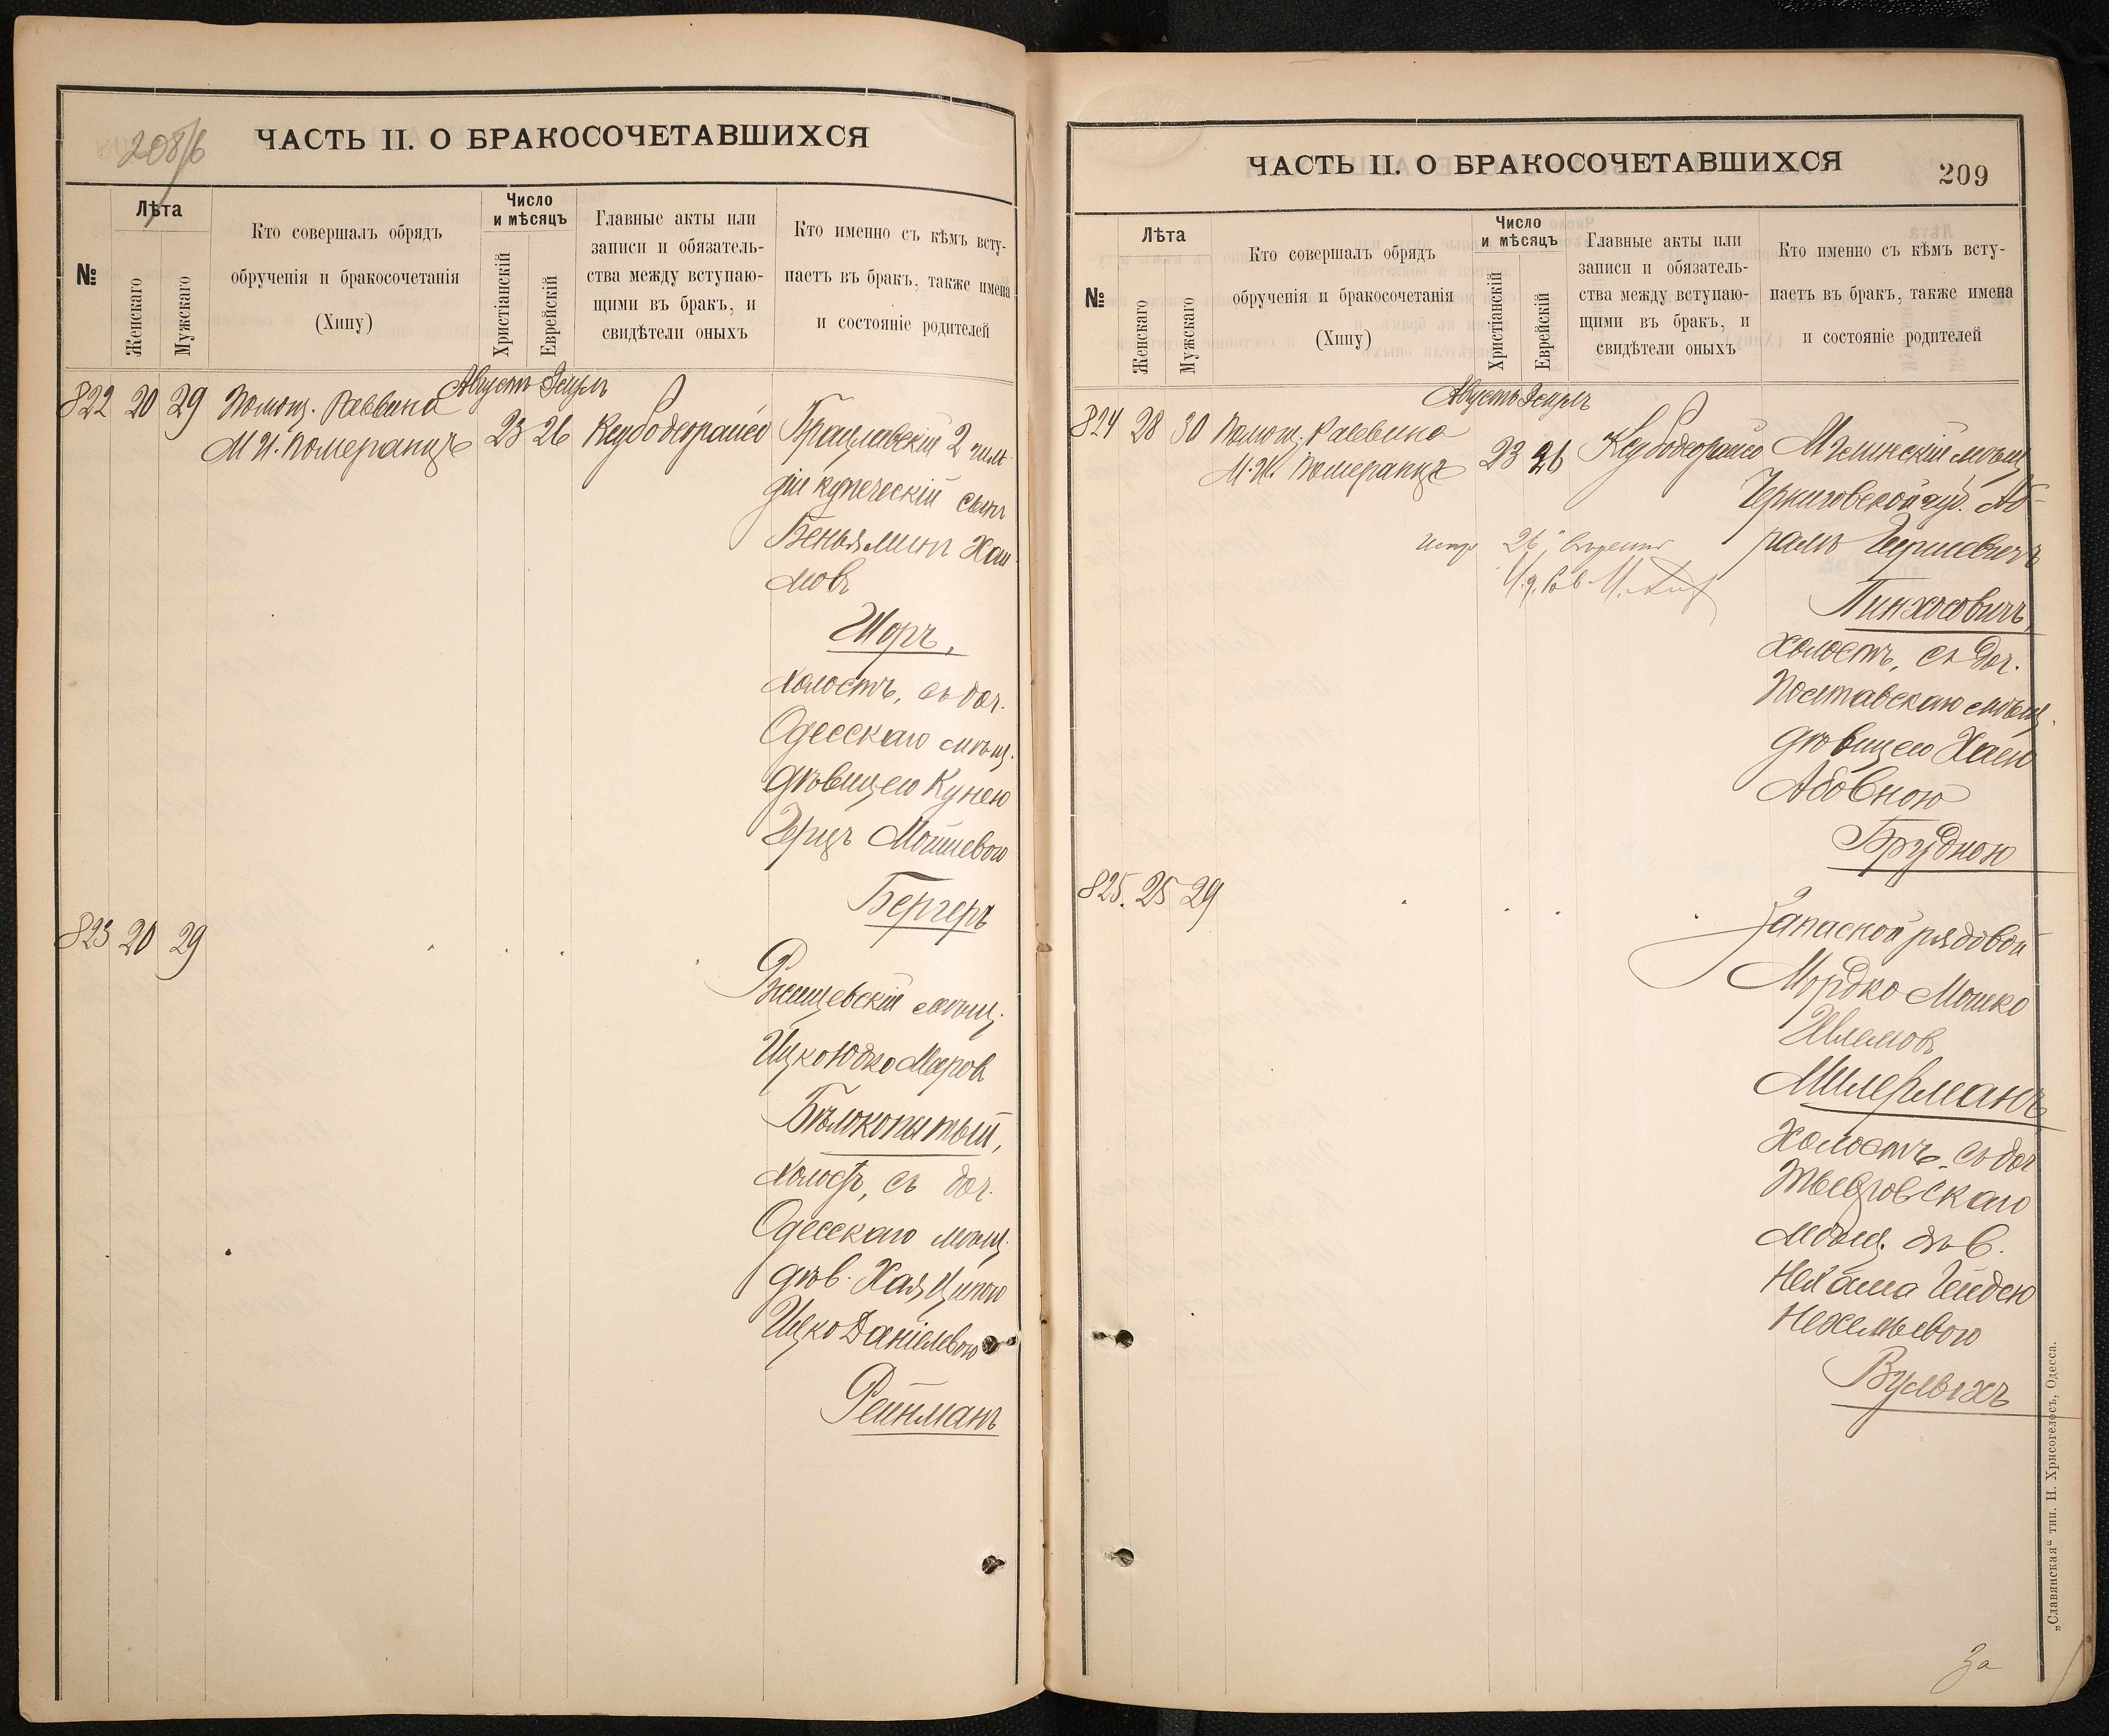 208/б
ЧАСТЬ II. О БРАКОСОЧЕТАВШИХСЯ
№
Лѣта
Женскаго
Мужскаго
Кто совершалъ обрядъ
обрученія и бракосочетанія
(Хипу)
Число
и мѣсяцъ
Христіанскій
Еврейскій
Главные акты или
записи и обязатель-
ства между вступаю-
щими въ бракъ, и
свидѣтели оныхъ
Кто именно съ кѣмъ всту-
паетъ въ бракъ, также имена
и состояніе родителей
Августъ Элулъ
822 20 29 Помощ. Раввина
М. И. Померанцъ 23 26
Брацлавскій 2 гиль-
діи купеческій сынъ
Беньяминъ Хаи-
мовъ
Шоръ,
холостъ, съ доч.
Одесскаго мѣщ.
дѣвицею Кунею
Герцъ Мошковою
Бергеръ
823 20 29
Ржищевскій мѣщ.
Ицко Юдко Меров
Бѣлокопытый,
холостъ, съ доч.
Одесскаго мѣщ.
дѣв. Хая Ципою
Ицко Даніелевою
Рейнманъ
ЧАСТЬ II. О БРАКОСОЧЕТАВШИХСЯ
209
№
Лѣта
Женскаго
Мужскаго
Кто совершалъ обрядъ
обрученія и бракосочетанія
(Хипу)
Число
и мѣсяцъ
Христіанскій
Еврейскій
Главные акты или
записи и обязатель-
ства между вступаю-
щими въ бракъ, и
свидѣтели оныхъ
Кто именно съ кѣмъ всту-
паетъ въ бракъ, также имена
и состояніе родителей
Августъ Элулъ
824 28 30 Помощ. Раввина
М. И. Померанцъ 23 26
Мглинскій мѣщ
Черниговской губ. Аб-
рамъ Гершевичъ
Пинхосовичъ,
холостъ, съ доч.
Полтавскаго мѣщ.
дѣвицею Хаею
Абовною
Брудною
825. 25 29
Запасной рядовой
Мордко Мошко
Шлемовъ
Милерманъ
Холостъ, съ доч
Звенигородскаго
мѣщ. дѣв.
Нехама Гендею
Нехемьевою
Вулыхъ
За
„Славянская“ тип. Н. Хрисогелосъ, Одесса.